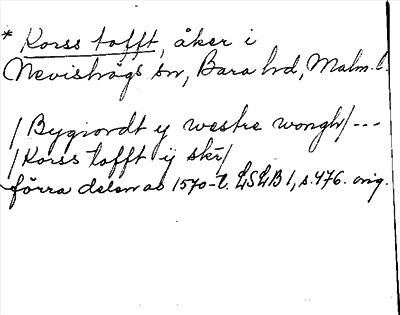 * Korss tofft, åker i
Nevishögs sn, Bara hd, Malm. l.
/Bygiordt y westre wongh/---
/Korss tofft ij skr/
förra delen av 1570-t. LSLB 1, s. 476. orig.